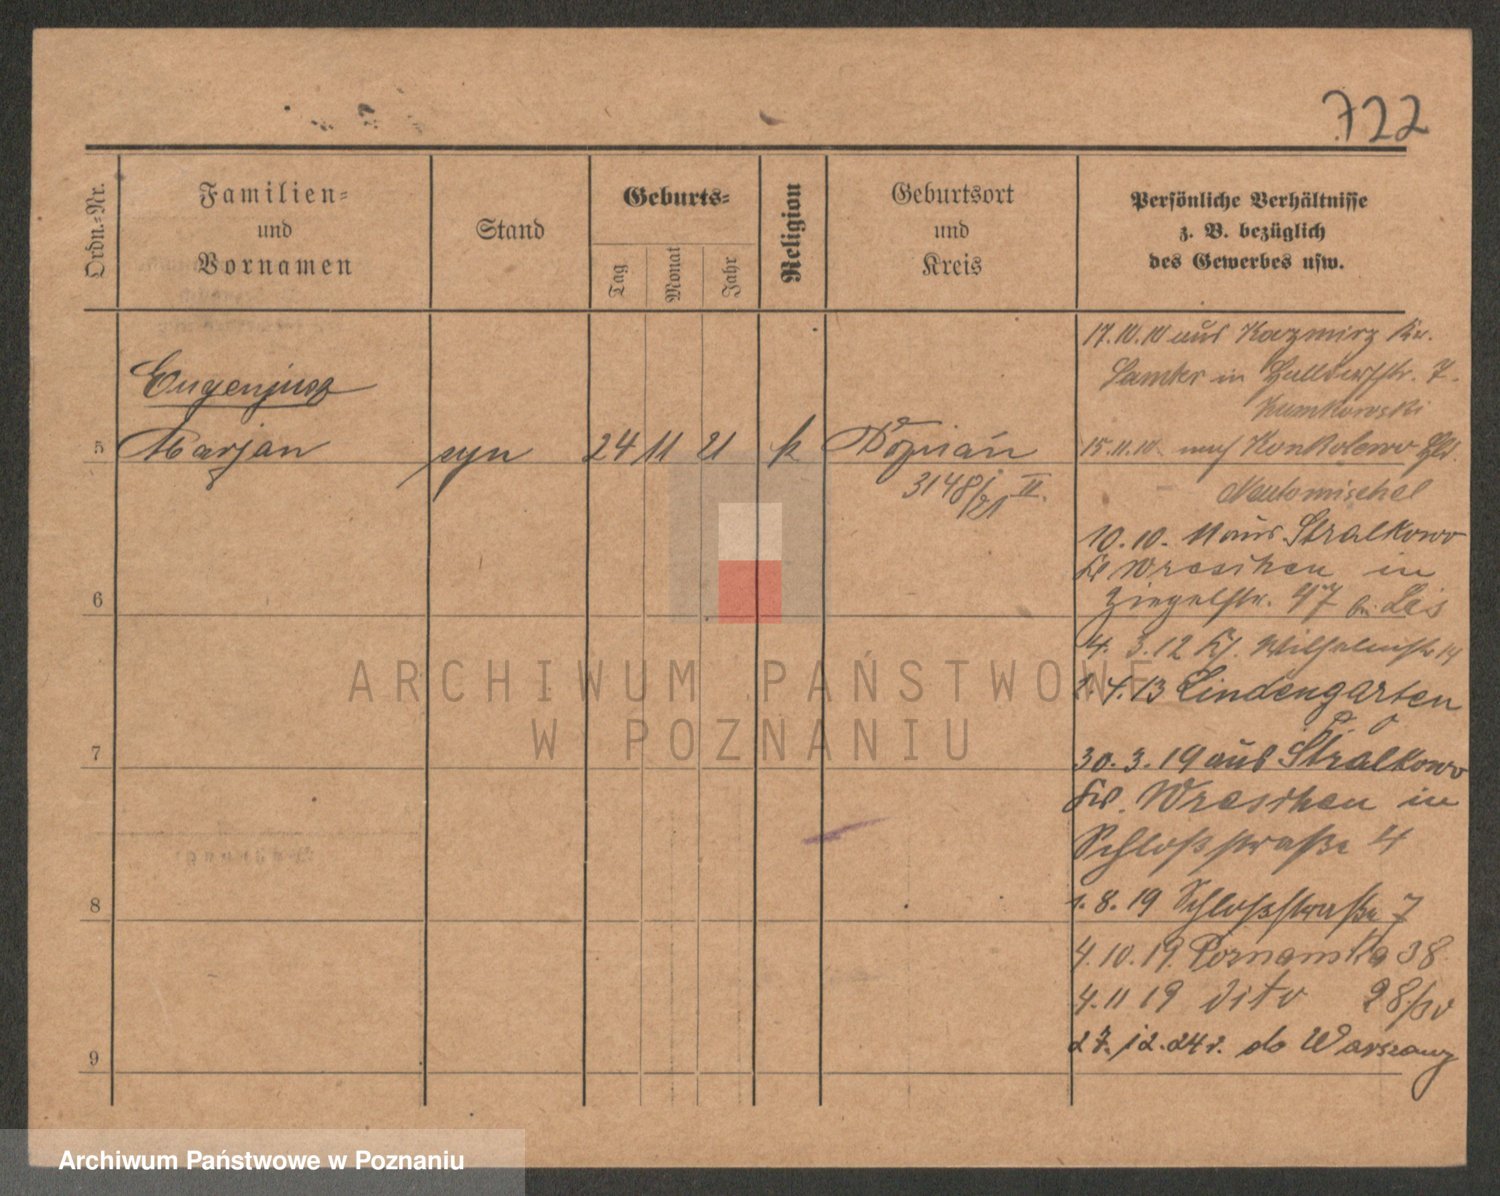 722
Ordn.-Nr.
Familien-
und
Vornamen
Stand
Geburts-
Tag
Monat
Jahr
Religion
Geburtsort
und
Kreis
Persönliche Verhältnisse
z. B. bezüglich
des Gewerbes usw.
Eugenjusz
5 Marjan syn 24 11 21 k Poznań
3148/21 II.
6
7
8
9
17.10.10 aus Kazmirz Kr.
Samter in Halldorfstr. 7.
15.11.10. nach Konkolewo
Neutomischel
10.10.11 aus Stralkowo
Kr Wreschen in
Ziegelstr. bei Lis
4.3.12 Wilhelmstr 14
1.4.13 Lindengarten
30.3.19 aus Stralkowo
Kr. Wreschen in
Schloßstraße 4
1.8.19 Schloßstraße 7
4.10.19 Poznanska 38
4.11 19 dito 28
27.12.24 r. do Warszawy
ARCHIWUM PAŃSTWOWE
W POZNANIU
Archiwum Państwowe w Poznaniu